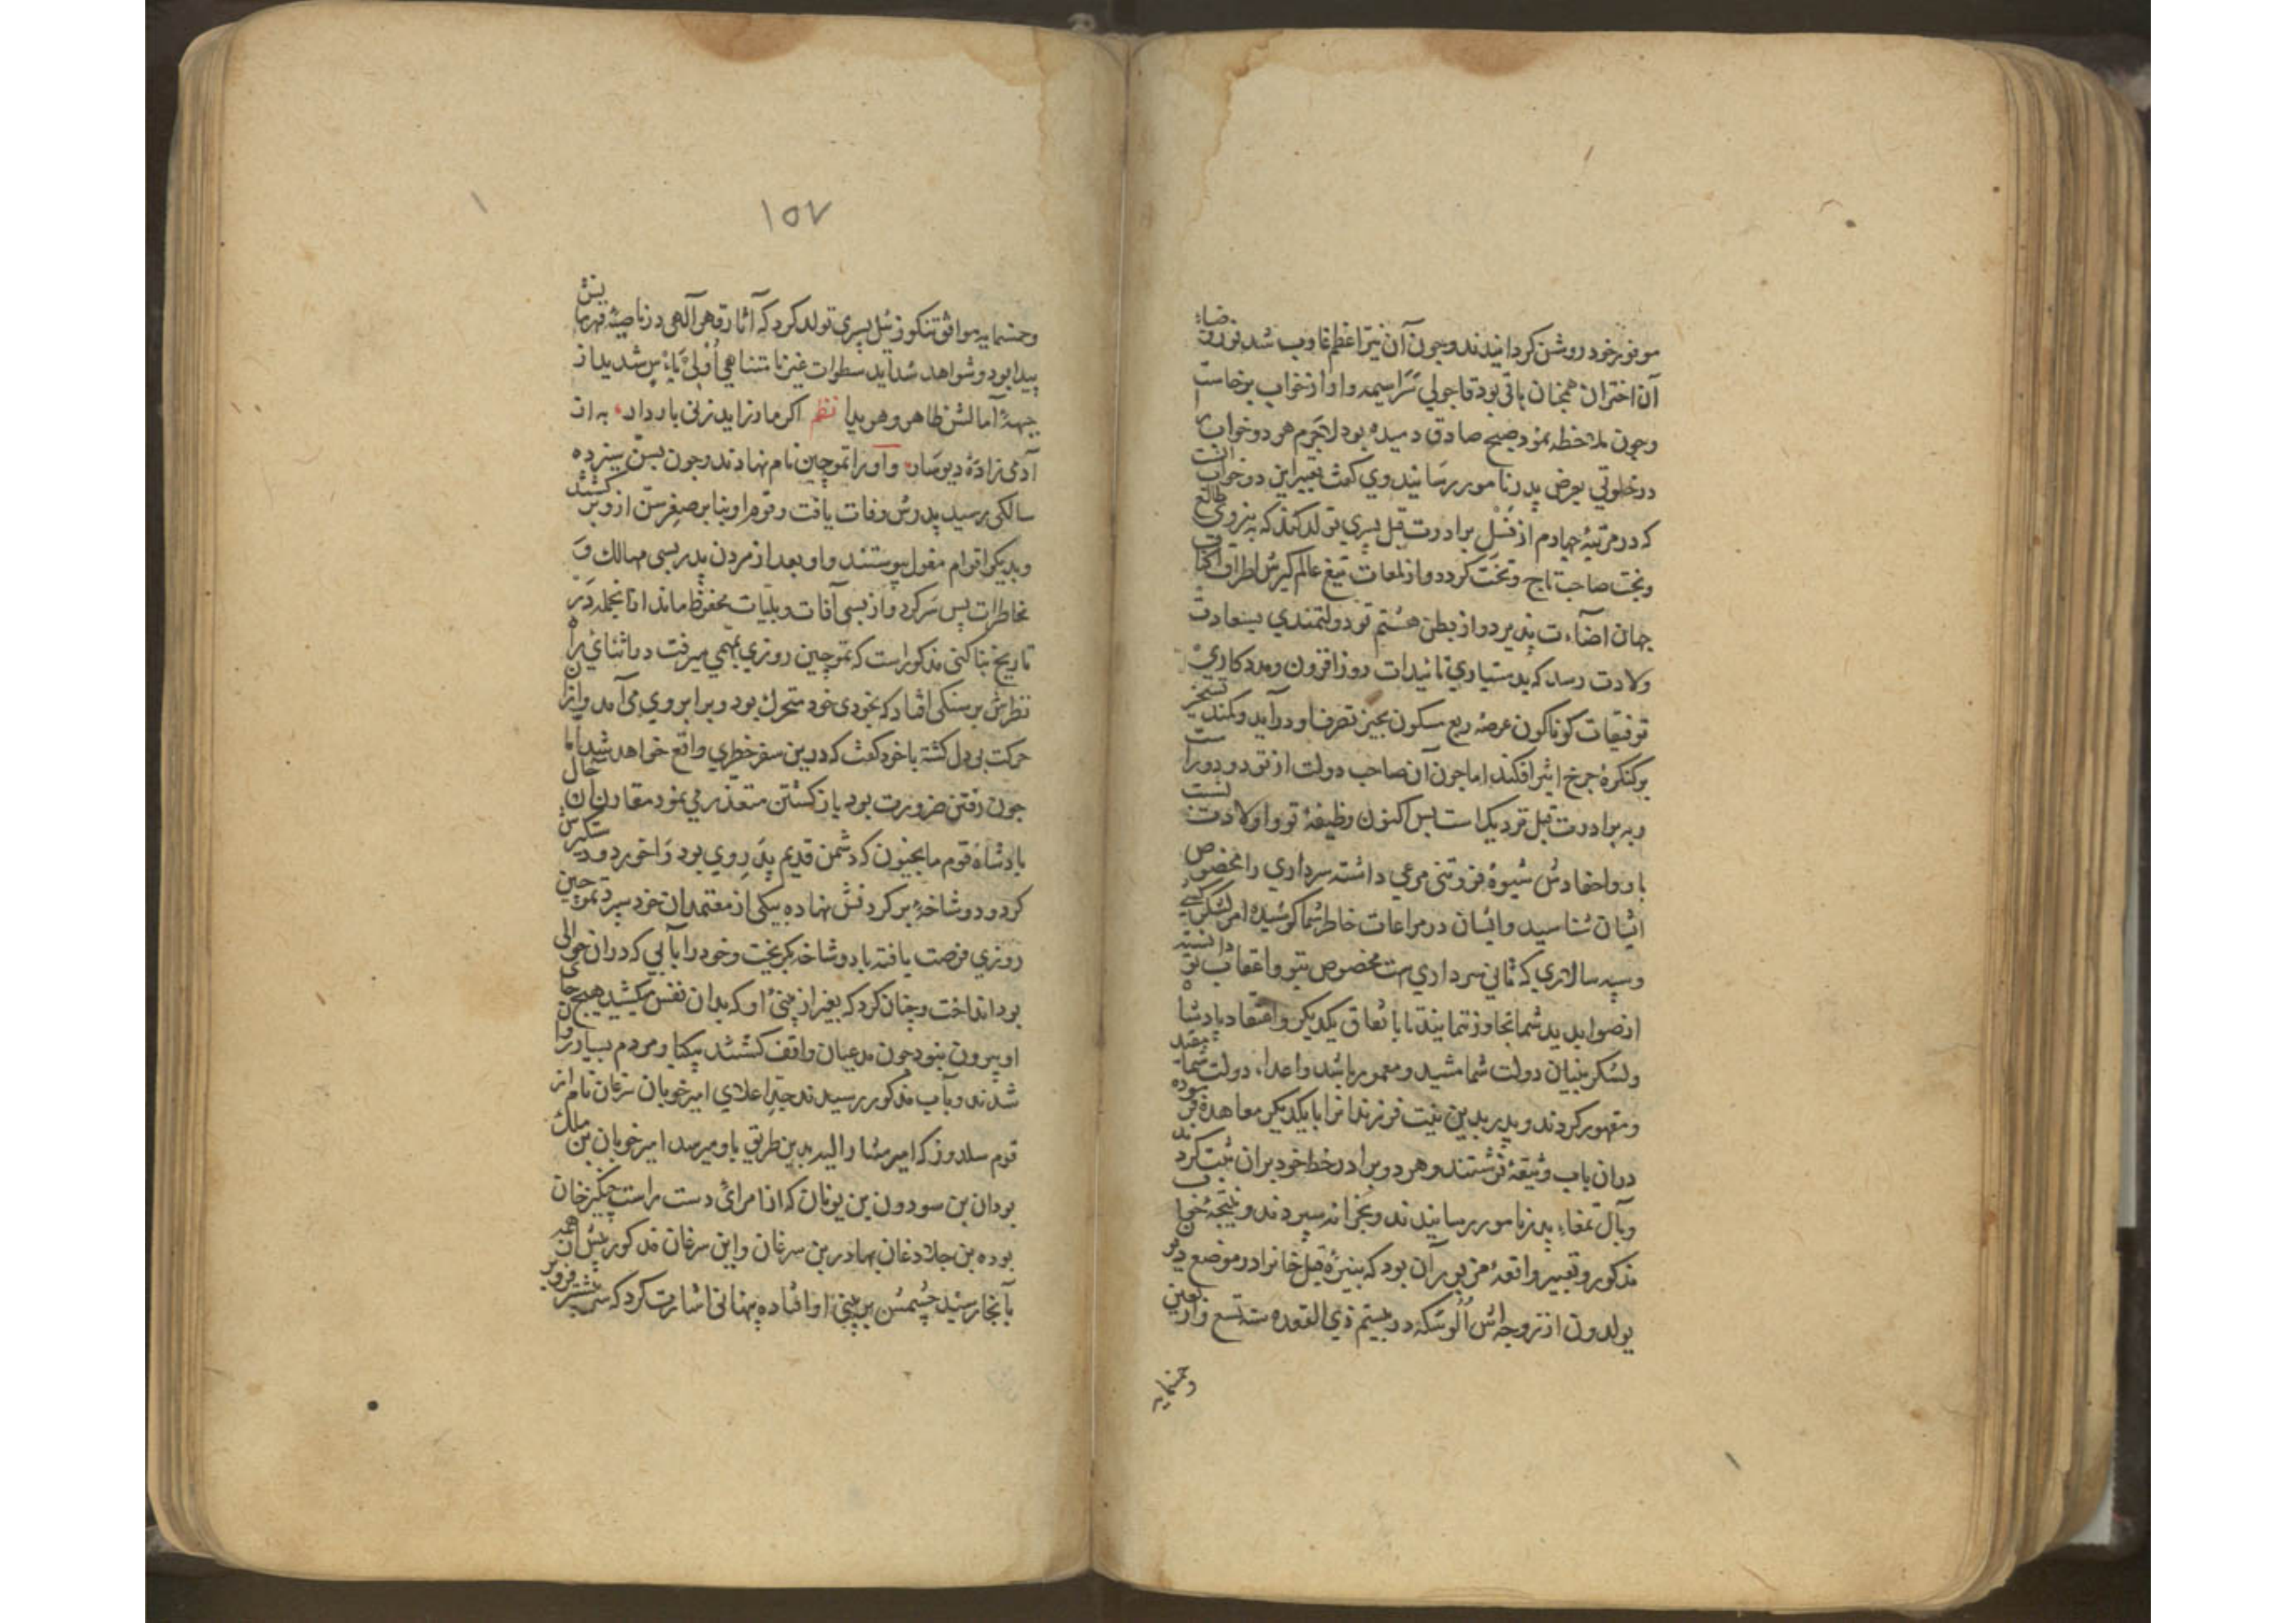 موفور خود روشن گردانیدند و چون آن نیّر اعظم غارب شد نور و ضیاء
آن اختران همچنان باقی بود قاجولی سراسیمه وار از خواب برخاست
و چون ملاحظه نمود صبح صادق دمیده بود لاجرم هر دو خواب را
در خلوتی بعرض پدر نامور رسانیدند وی گفت تعبیر این دو خواب آنست
که در مرتبهٔ چهارم از نسل برادرت قبل پسری تولد کند که به نیروی طالع
و بخت صاحب تاج و تخت گردد و از لمعات تیغ عالم گیرش اطراف اکناف
جهان اضاءت پذیرد و از بطن هشتم تو دولتمندی بسعادت
ولادت رسد که بدستیاری تائیدات روز افزون و مددکاری
توفیقات کوناکون عرصهٔ ربع مسکون بحیز تصرف او درآید و کمند تسخیر
بر کنکرهٔ چرخ اثیر افکند اما چون آن صاحب دولت از تو دورتر است
و به برادرت قبل نزدیک است پس اکنون وظیفهٔ تو و اولادت آنست
با او و احفادش شیوهٔ فروتنی مرعی داشته سرداری را مخصوص
ایشان شناسید و ایشان در مراعات خاطر شما کوشیده امر لشکرکشی
و سپه سالاری که ثانی سرداریست مخصوص بتو و اعقاب تو دانسته
از صوابدید شما تجاوز ننمایند تا باتفاق یکدیگر و اعتقاد پادشاه
و لشکر بنیان دولت شما مشید و معمور باشد و اعداء دولت شما مقید
و مقهور گردند و پدر بدین نیت فرزندانرا با یکدیگر معاهده فرموده
در ان باب وثیقهٔ نوشتند و هر دو برادر خط خود بران ثبت کردند
و بآل تمغاء پدر نامور رسانیدند و بخزانه سپردند و نتیجهٔ خواب
مذکور و تعبیر واقعهٔ مزبور آن بود که نبیرهٔ قبل خانرا در موضع دیلون
یولدون از زوجه‌اش اُلوسکه در بیستم ذی القعده سنه تسع و اربعین
وخمسمایه
۱۵۷
وخمسمایه موافق تنکوزئیل پسری تولد کرد که آثار قهر آلهی در ناصیهٔ قهرمانیش
پیدا بود و شواهد شداید سطوات غیر نامتناهی اُولیٖ بَأسٍ شَدید از
جبههٔ آمالش ظاهر و هویدا نظم اکر مادر زاید زنی باردار به از
آدمی زادهٔ دیوسار و او را تموچین نام نهادند و چون بسن سیزده
سالکی رسید پدرش وفات یافت و قوم او بنابر صغر سن ازو برکشتند
و بدیکر اقوام مغول پیوستند و او بعد از مردن پدر بسی مهالک و
مخاطرات پس سر کرد و از بسی آفات و بلیات محفوظ ماند از آنجمله در
تاریخ بناکتی مذکور است که تموچین روزی بمهمی میرفت در اثنای راه
نظرش بر سنکی افتاد که بخودی خود متحرک بود و برابر وی می‌آمد و ازان
حرکت بی دل کشته با خود کفت که درین سفر خطری واقع خواهد شد اما
چون رفتن ضرورت بود بازکشتن متعذر می نمود مقارن ان حال
پادشاه قوم مایجیون که دشمن قدیم پدر وی بود
کرد و دو شاخهٔ بر کردنش نهاده بیکی از معتمدان خود سپرد تموچین
روزی فرصت یافته با دو شاخه بکریخت و خود را بآبی که دران حوالی
بود انداخت و چنان کرد که بغیر از بینی او که بدان نفس میکشید هیچ جای
او بیرون نبود چون مدعیان واقف کشتند
شدند و بآب مذکور رسیدند جد اعلای امیر چوبان سرغان نام از
قوم سلدوز که امیر مشار الیه بدین طریق باو میرسد امیر چوبان بن ملک
بودان بن سودون بن یونان که از امرای دست راست چنکیزخان
بوده بن جلادغان بهادر بن سرغان و این سرغان مذکور پیش از همه
بآنجا رسید چشمش بر بینی او افتاده پنهانی اشارت کرد که سر بیشتر فرو بر